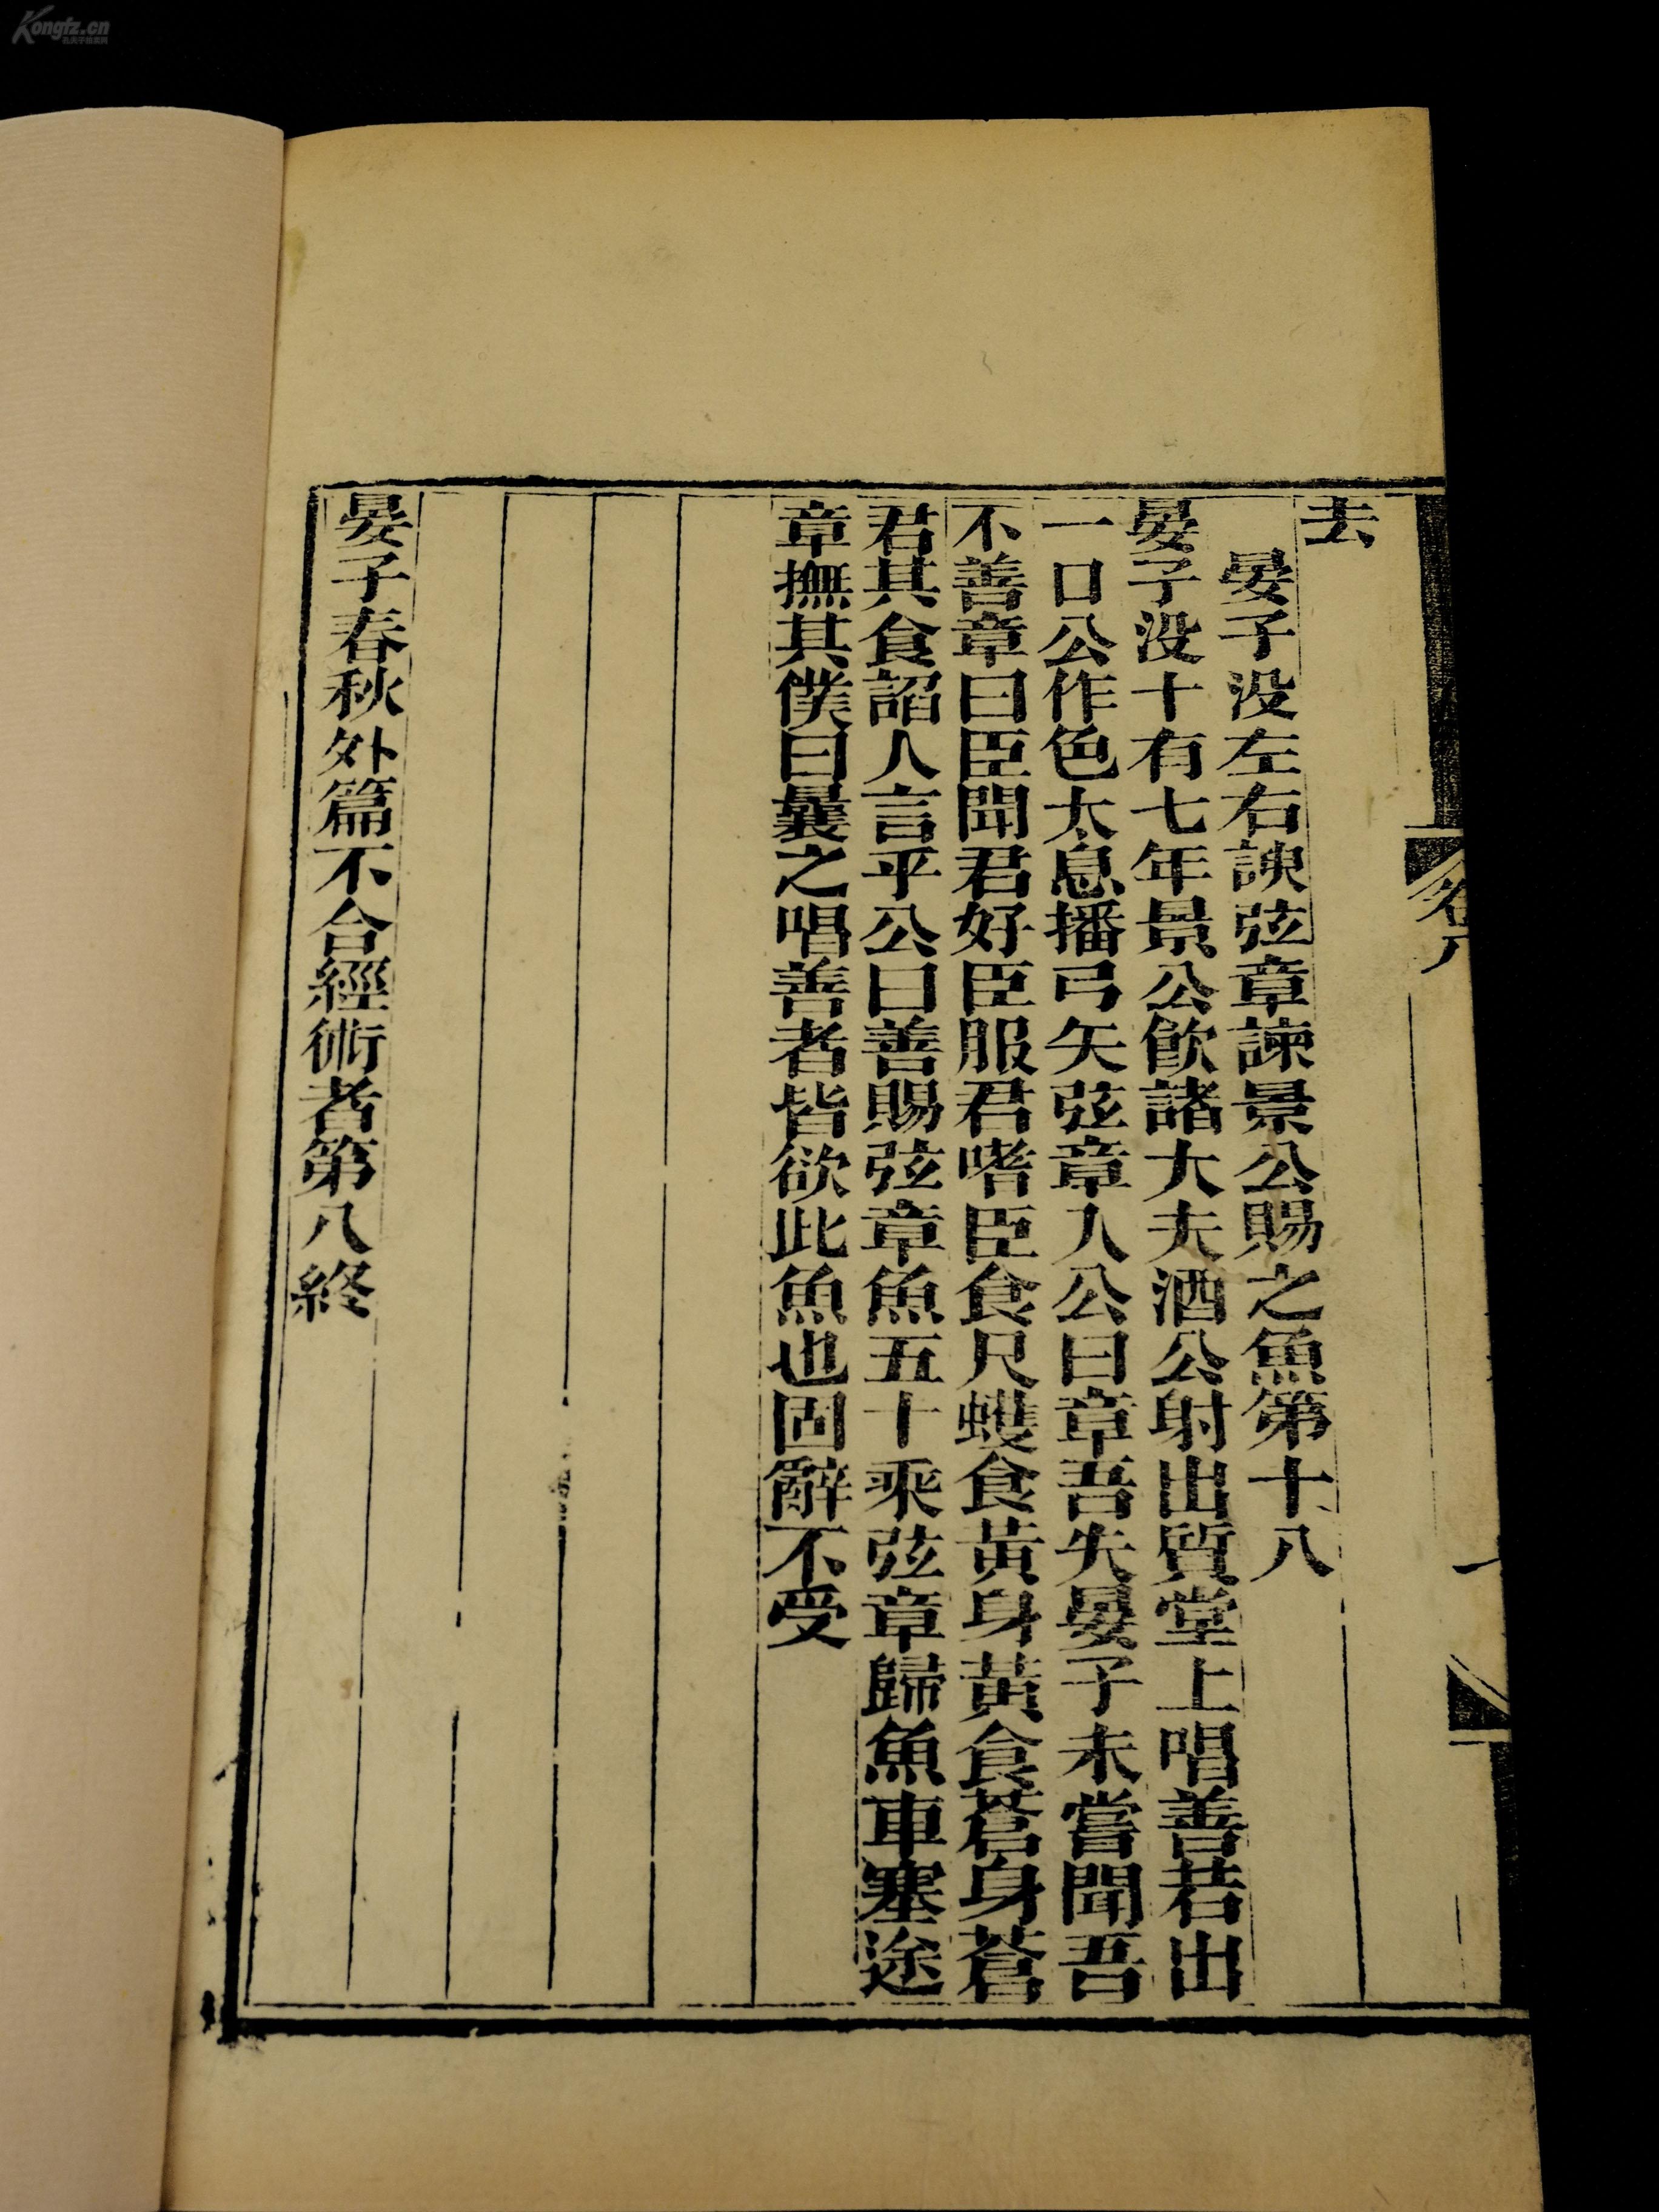 去
晏子没左右諛弦章諫景公賜之魚第十八
晏子没十有七年景公飮諸大夫酒公射出質堂上唱善若出
一口公作色太息播弓矢弦章入公曰章吾失晏子未嘗聞吾
不善章曰臣聞君好臣服君嗜臣食尺蠖食黃身黃食蒼身蒼
君其食諂人言乎公曰善賜弦章魚五十乘弦章歸魚車塞途
章撫其僕曰曩之唱善者皆欲此魚也固辭不受
晏子春秋外篇不合經術者第八終
Kongfz.cn